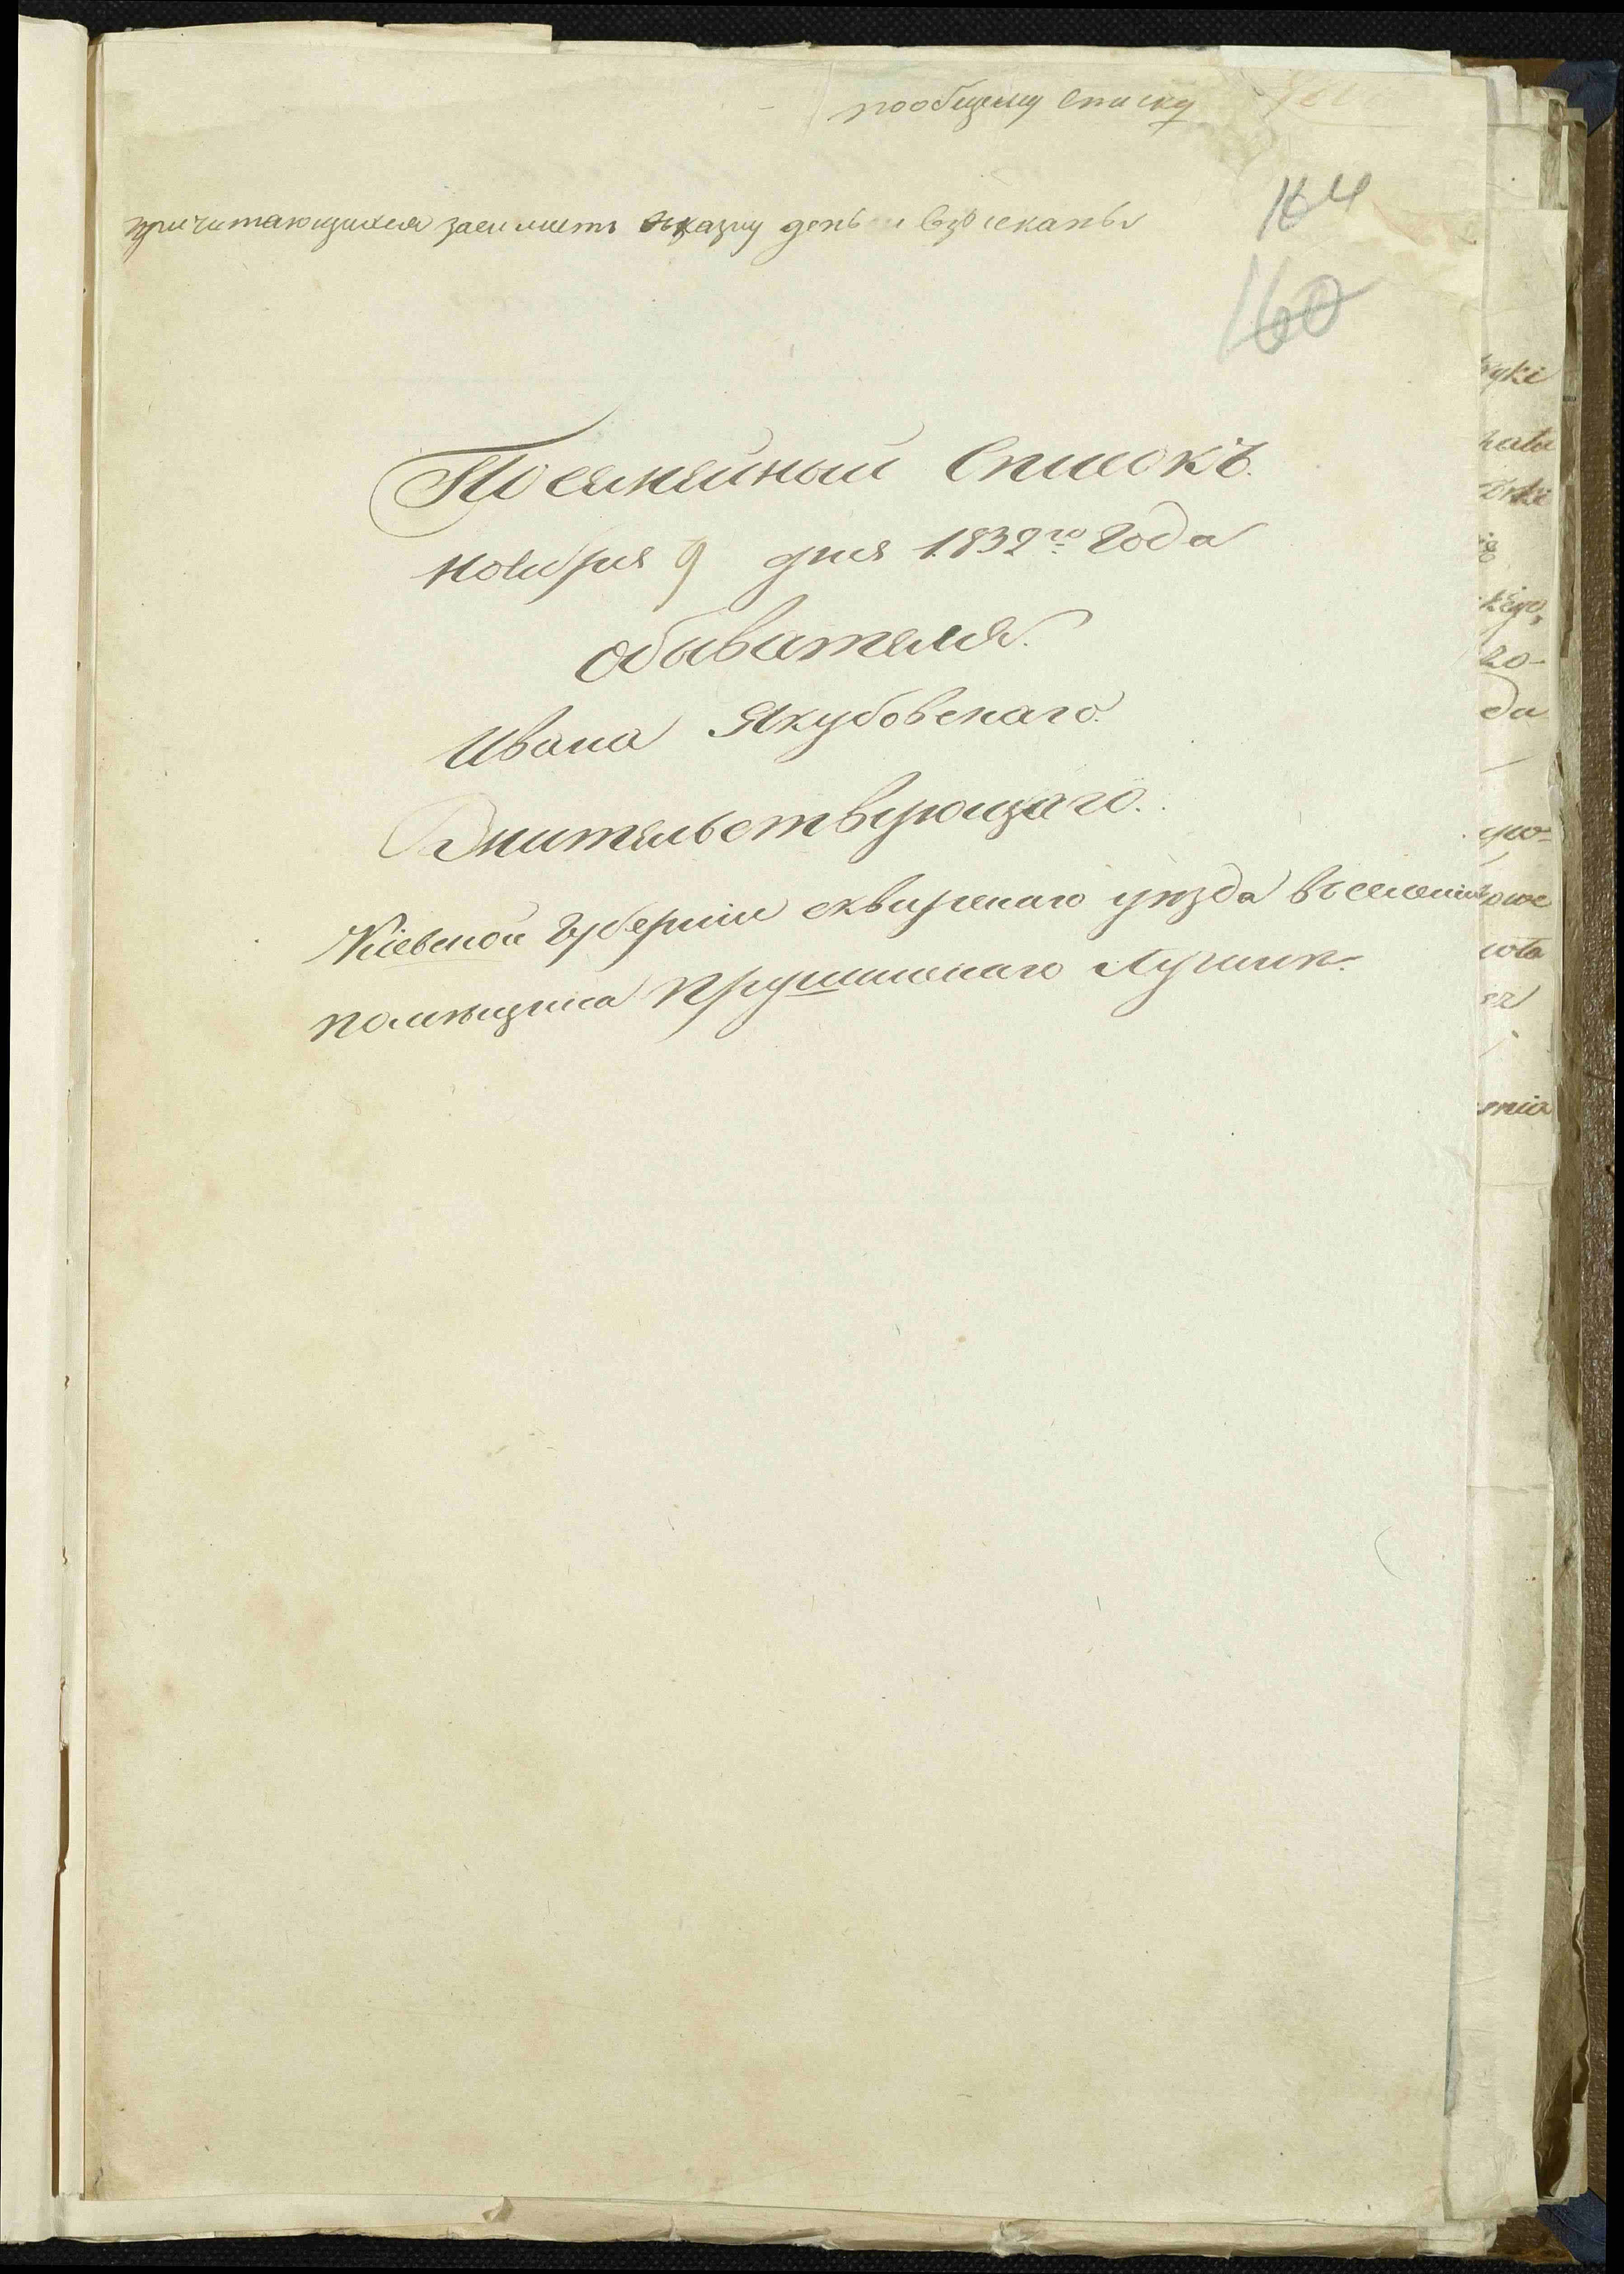 пообщему Списку
164
причитающихся заси листъ въказну деньги взысканы
160
Посемейный Списокъ.
Ноября 9 дня 1832го Года
обывателя.
Ивана Якубовскаго.
Жительствующаго.
Кіевской Губерніи сквирскаго уезда Вселеніи
помѣщика Прушинскаго Лучин.